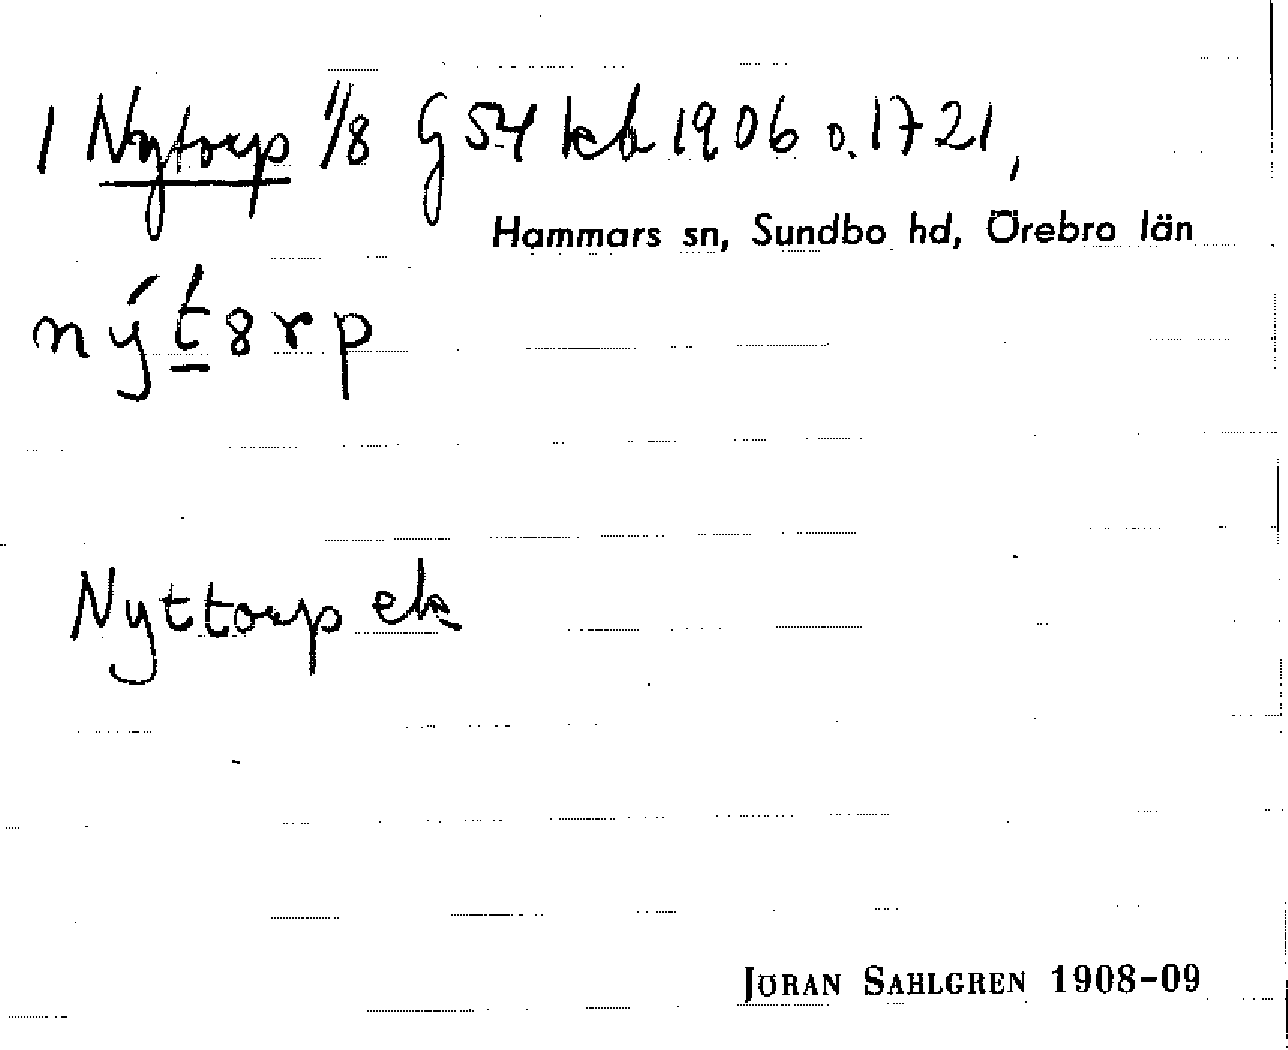 1 Nytorp 1/8 G 54 kb 1906 o. 1721,
Hammars sn, Sundbo hd, Örebro län
nýt8rp
Nyttorp ek
JÖRAN SAHLGREN 1908-09